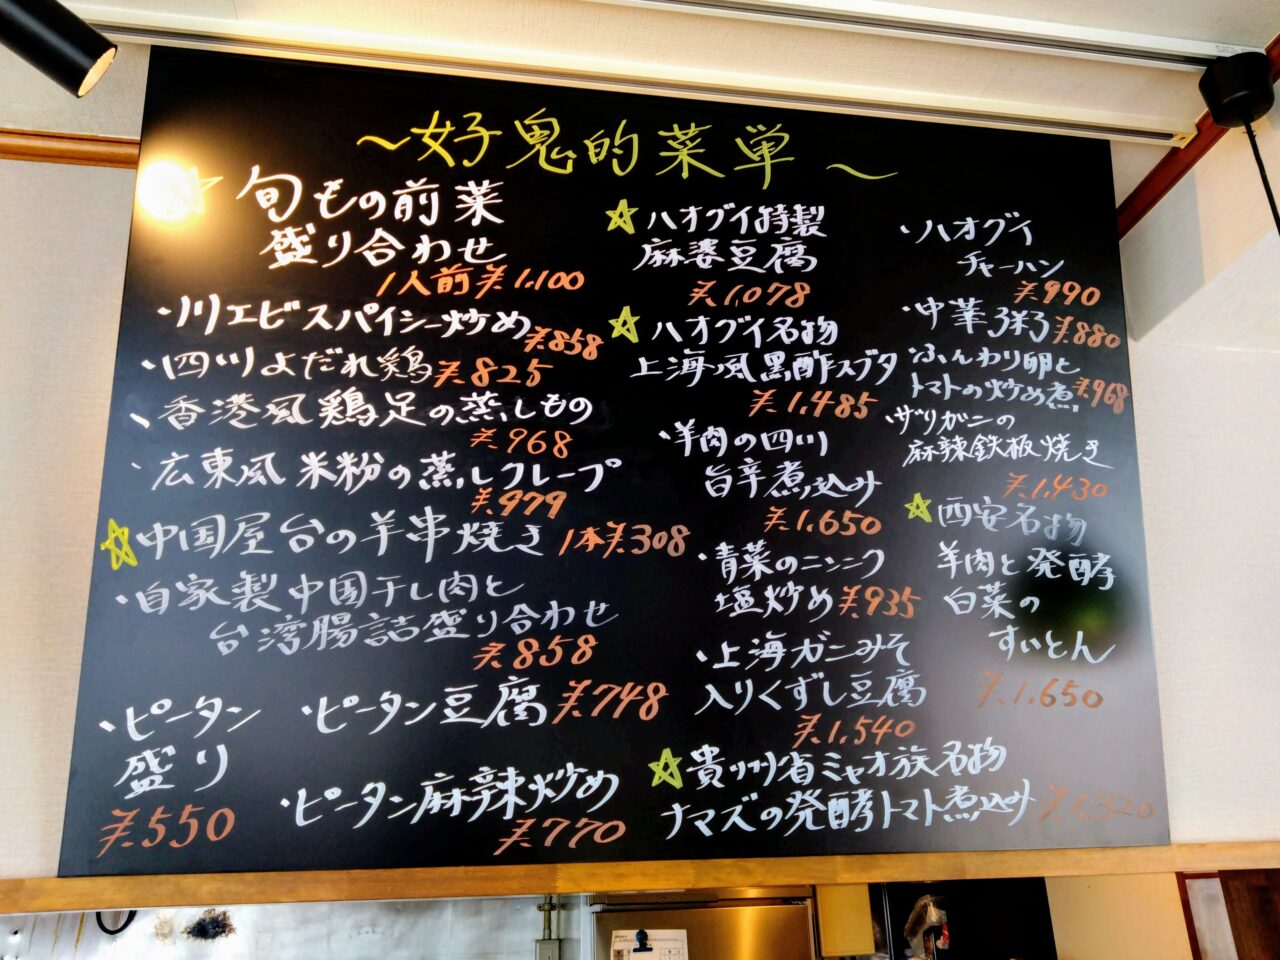 ～好鬼的菜単～
☆旬もの前菜
盛り合わせ
1人前¥1,100
・川エビスパイシー炒め¥858
・四川よだれ鶏¥825
・香港風鶏足の蒸しもの
¥968
・広東風米粉の蒸しクレープ
¥979
☆中国屋台の羊串焼き 1本¥308
・自家製中国干し肉と
台湾腸詰盛り合わせ
¥858
・ピータン
盛り
¥550
・ピータン豆腐¥748
・ピータン麻辣炒め
¥770
☆ハオグイ特製
麻婆豆腐
¥1,078
☆ハオグイ名物
上海風黒酢スブタ
¥1,485
・羊肉の四川
旨辛煮込み
¥1,650
・青菜のニンニク
塩炒め¥935
・上海ガニみそ
入りくずし豆腐
¥1,540
☆貴州省ミャオ族名物
ナマズの発酵トマト煮込み¥1,320
・ハオグイ
チャーハン
¥990
・中華粥¥880
・ふんわり卵と
トマトの炒め煮¥968
・ザリガニの
麻辣鉄板焼き
¥1,430
☆西安名物
羊肉と発酵
白菜の
すいとん
¥1,650